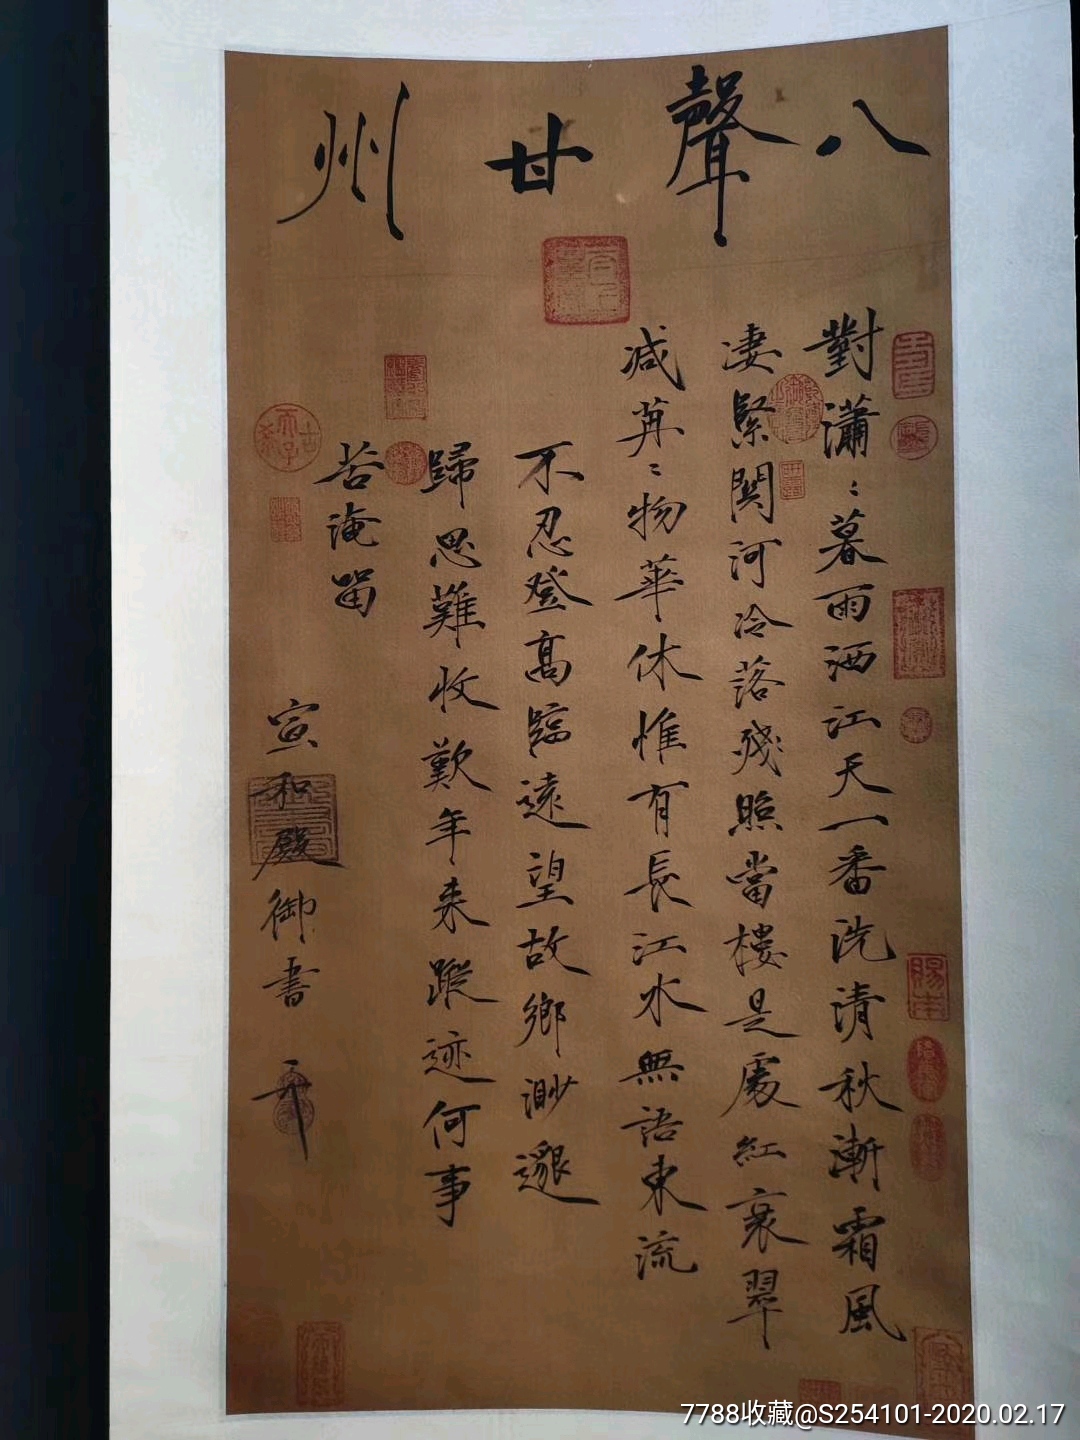 八聲甘州
對瀟〻暮雨洒江天一番洗清秋漸霜風
淒緊関河冷落殘照當樓是處紅衰翠
減苒〻物華休惟有長江水無語東流
不忍登高臨遠望故鄉渺邈
歸思難收歎年来蹤迹何事
苦淹留
宣和殿御書
賜本
7788收藏@S254101-2020.02.17